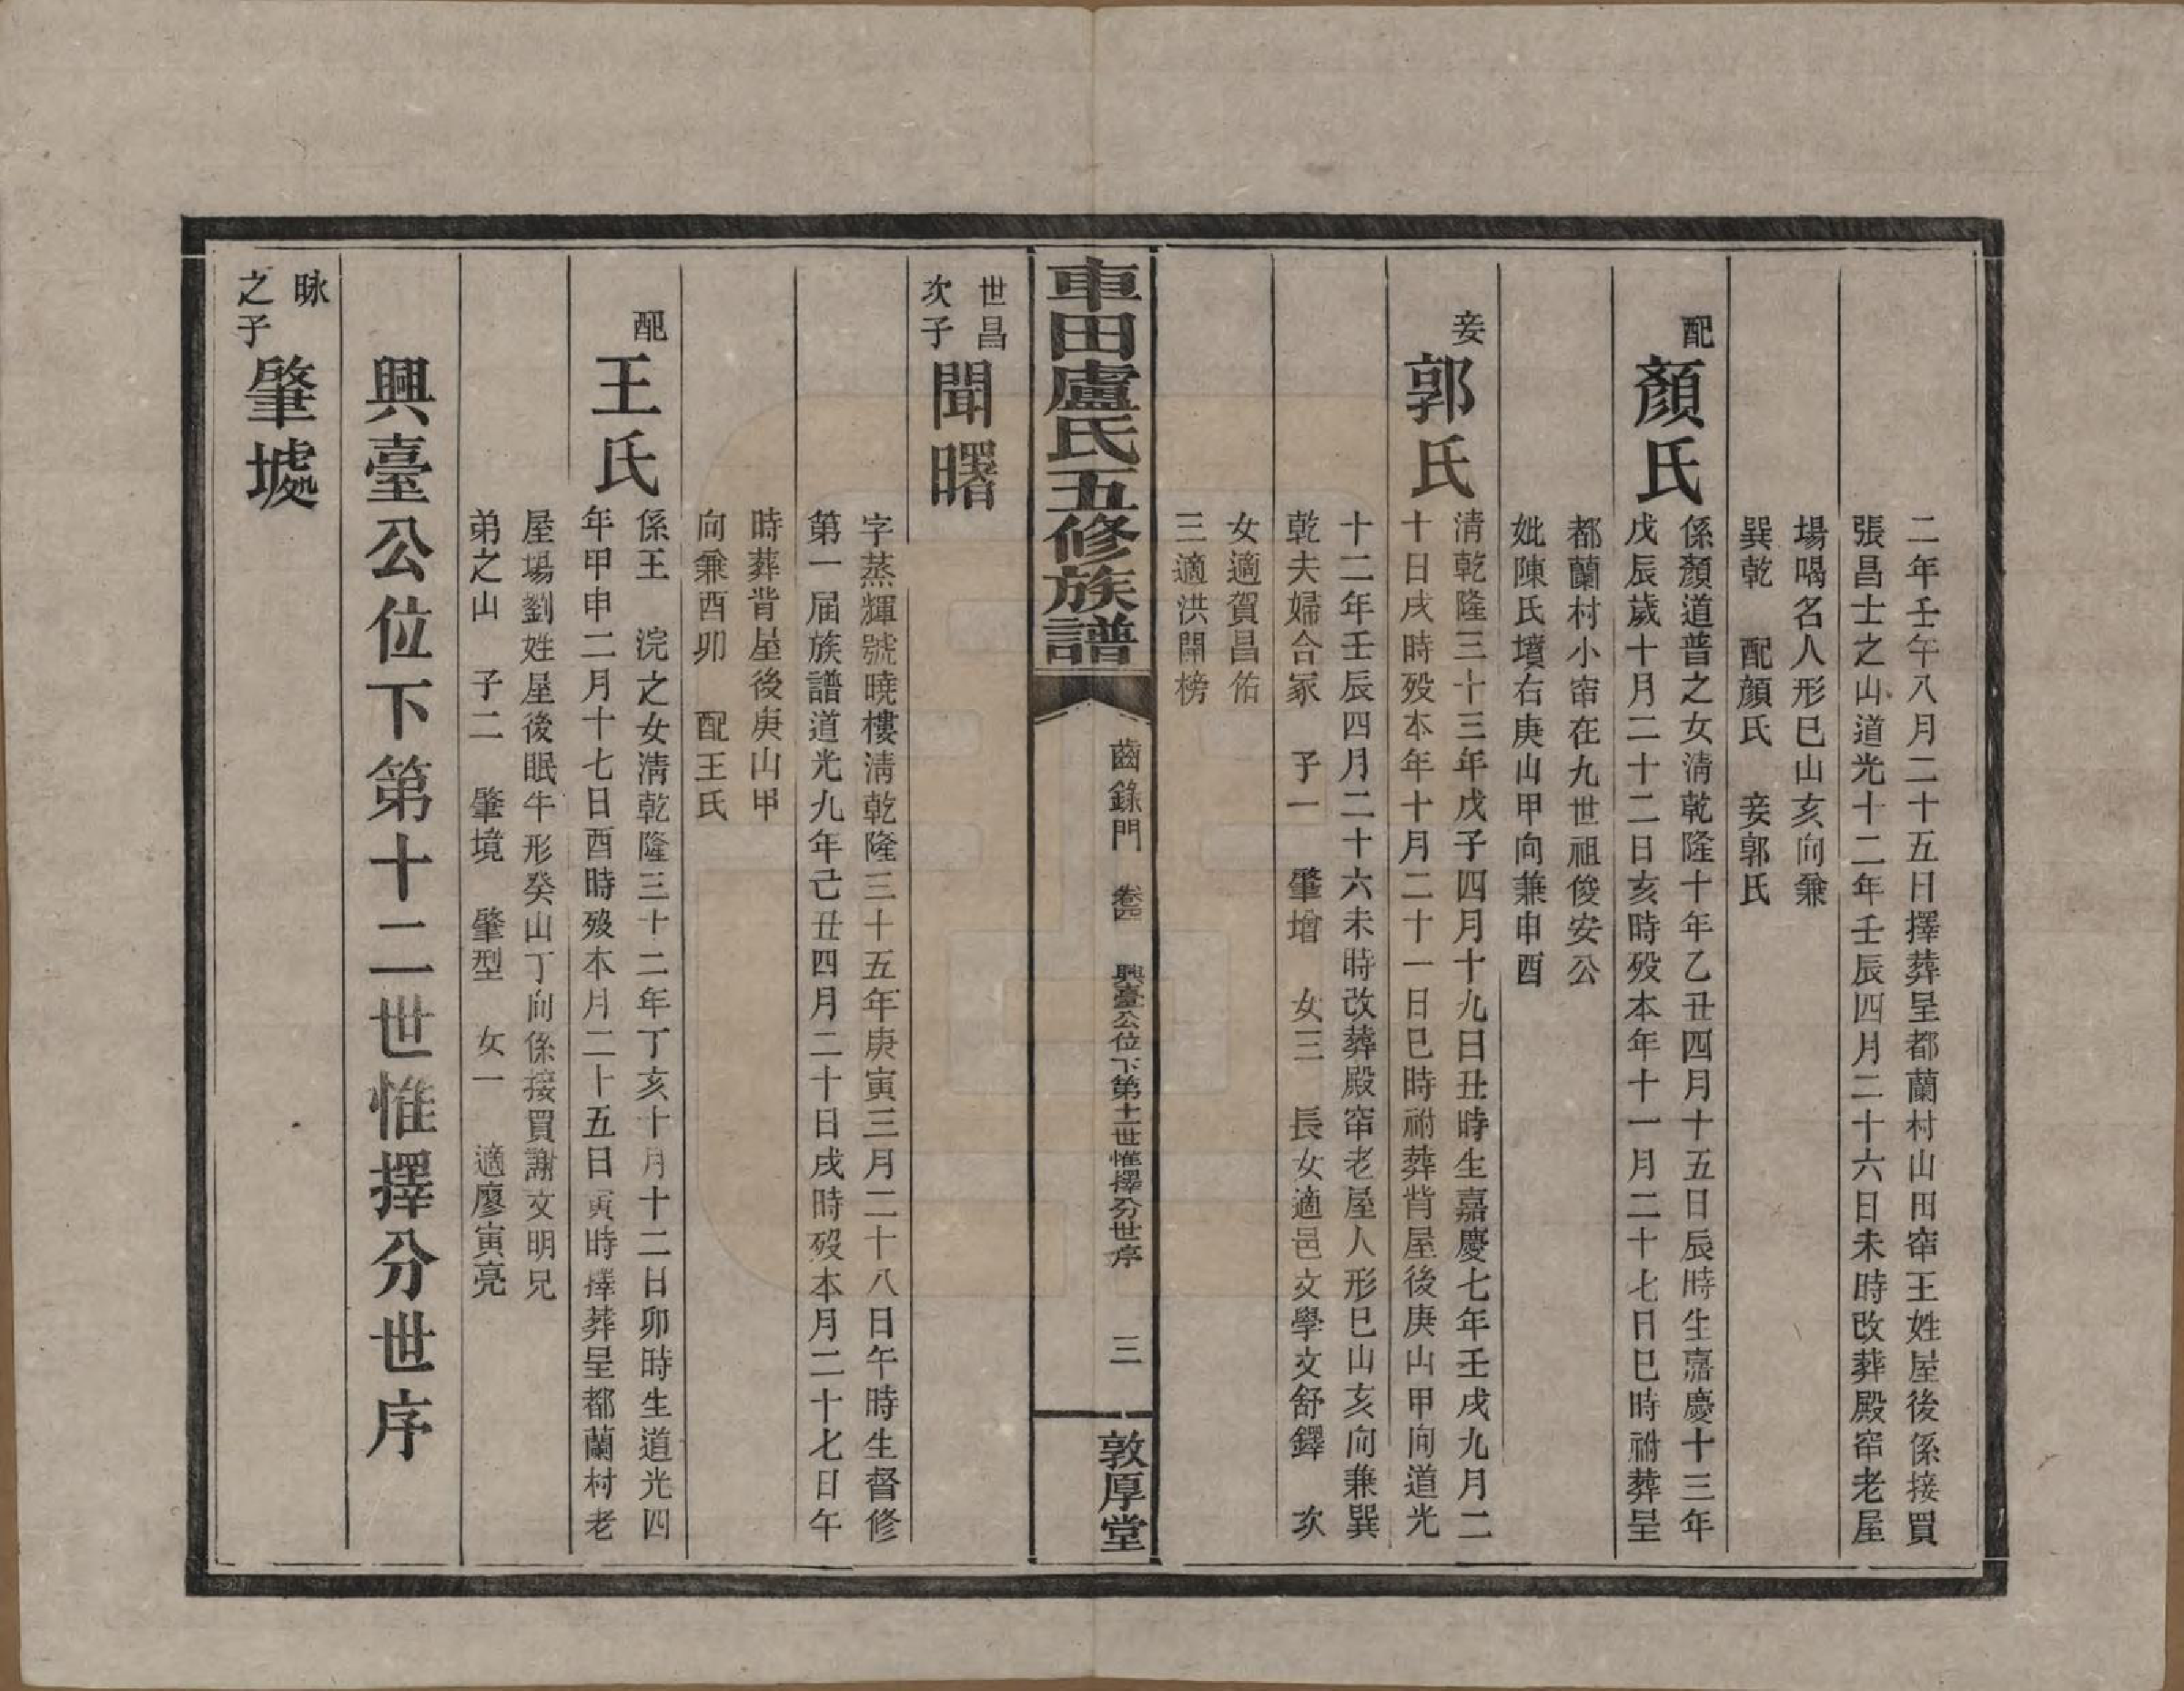 二年壬午八月二十五日擇葬呈都蘭村山田窂王姓屋後係接買
張昌士之山道光十二年壬辰四月二十六日未時改葬殿窂老屋
場喝名人形巳山亥向兼
巽乾　配顏氏　妾郭氏
配
顏氏
係顏道普之女清乾隆十年乙丑四月十五日辰時生嘉慶十三年
戊辰歲十月二十二日亥時歿本年十一月二十七日巳時祔葬呈
都蘭村小窂在九世祖俊安公
妣陳氏墳右庚山甲向兼申酉
妾
郭氏
清乾隆三十三年戊子四月十九日丑時生嘉慶七年壬戌九月二
十日戌時歿本年十月二十一日巳時祔葬背屋後庚山甲向道光
十二年壬辰四月二十六未時改葬殿窂老屋人形巳山亥向兼巽
乾夫婦合冢　子一　肇增　女三　長女適邑文學文舒鐸　次
女適賀昌佑
三適洪開榜
車田盧氏五修族譜
齒錄門　卷四　興臺公位下第十二世惟擇分世序　三
敦厚堂
世昌
次子
聞曙
字蒸輝號曉樓清乾隆三十五年庚寅三月二十八日午時生督修
第一屆族譜道光九年己丑四月二十日戌時歿本月二十七日午
時葬背屋後庚山甲
向兼酉卯　配王氏
配
王氏
係王　浣之女清乾隆三十二年丁亥十月十二日卯時生道光四
年甲申二月十七日酉時歿本月二十五日寅時擇葬呈都蘭村老
屋場劉姓屋後眠牛形癸山丁向係接買謝文明兄
弟之山　子二　肇境　肇型　女一　適廖寅亮
興臺公位下第十二世惟擇分世序
昹
之子
肇墟